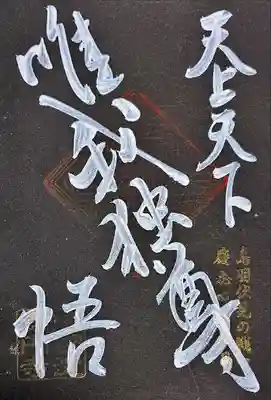 天上天下
唯我独尊
悟
鳥羽伏見の戦
慶応